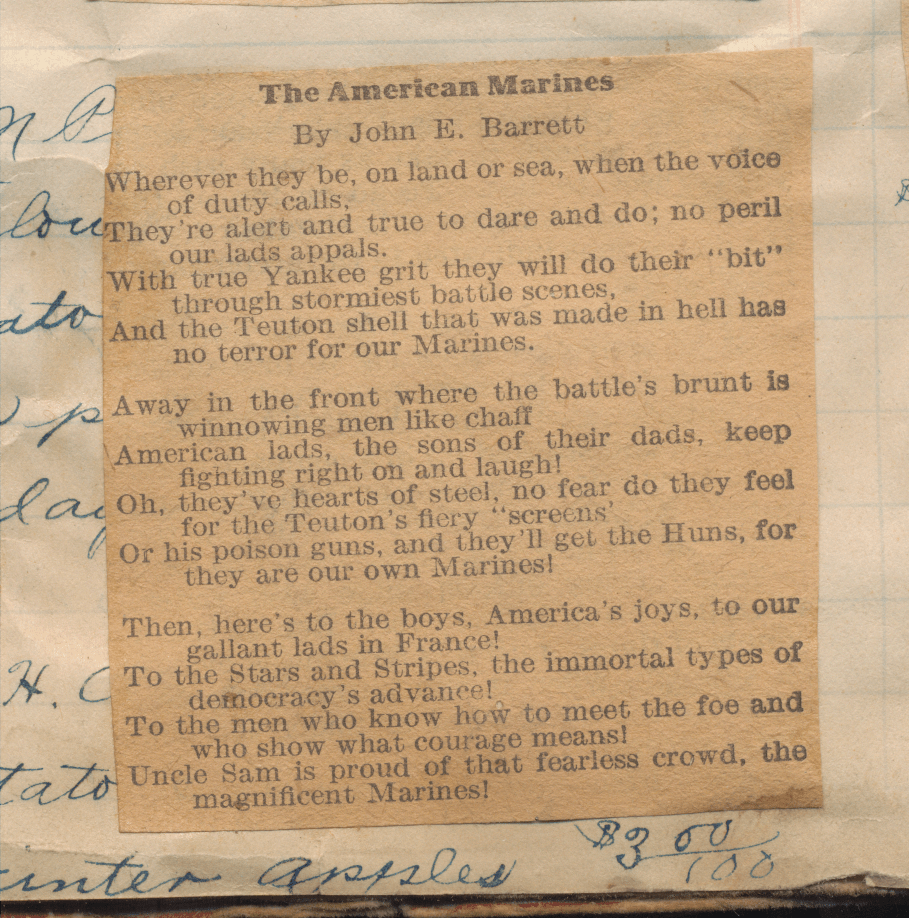 The American Marines
By John E. Barrett
Wherever they be, on land or sea, when the voice
of duty calls,
They're alert and true to dare and do; no peril
our lads appals.
With true Yankee grit they will do their "bit"
through stormiest battle scenes,
And the Teuton shell that was made in hell has
no terror for our Marines.
Away in the front where the battle's brunt is
winnowing men like chaff
American lads, the sons of their dads, keep
fighting right on and laugh!
Oh, they've hearts of steel, no fear do they feel
for the Teuton's fiery "screens'
Or his poison guns, and they'll get the Huns, for
they are our own Marines!
Then, here's to the boys, America's joys, to our
gallant lads in France!
To the Stars and Stripes, the immortal types of
democracy's advance!
To the men who know how to meet the foe and
who show what courage means!
Uncle Sam is proud of that fearless crowd, the
magnificent Marines!
lou
ato
p
day
H. C
tato
apples $3 00/100